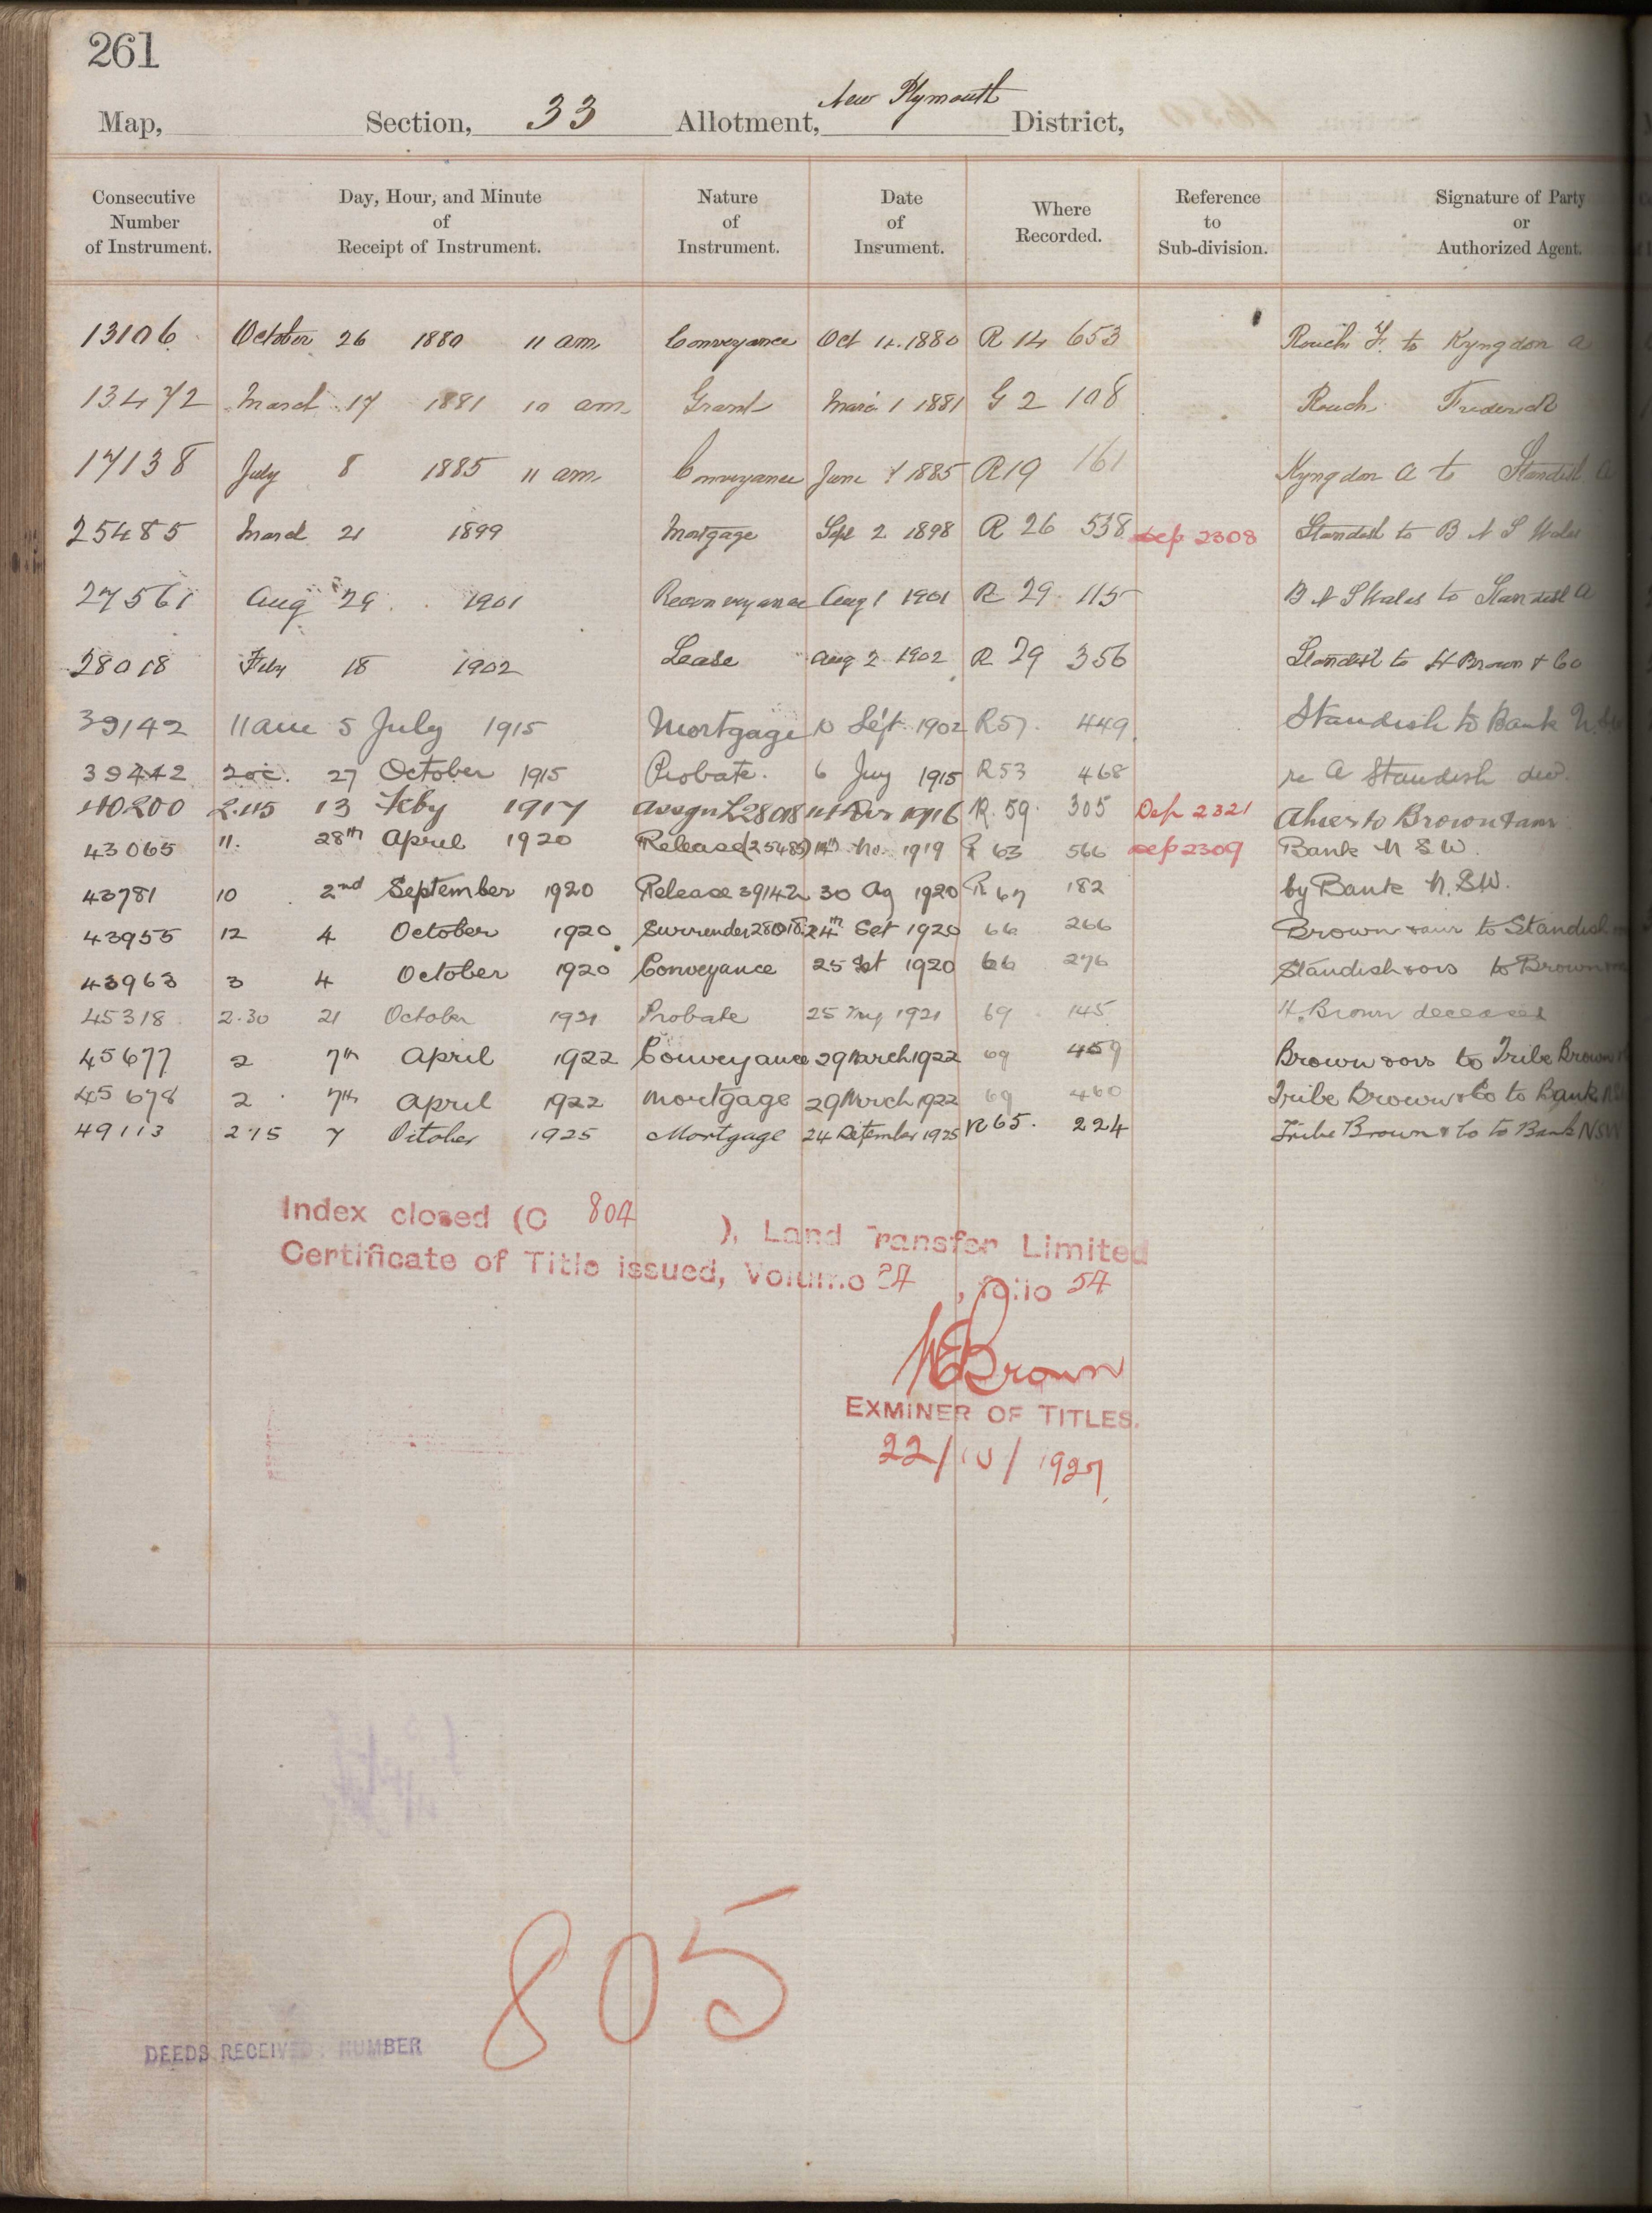 261
New Plymouth
Map, Section, 33 Allotment, District,
Consecutive Number of Instrument. Day, Hour, and Minute of Receipt of Instrument. Nature of Instrument. Date of Insument. Where Recorded. Reference to Sub-division. Signature of Party or Authorized Agent.
13106 October 26 1880 11 am Conveyance Oct 1880 R 14 653 to Kyngdon A
13472 March 17 1881 10 am Grant March 1 1881 G 2 108 Frederick
17138 July 8 1885 11 am Conveyance June 1885 R19 161 Kyngdon A to Standish A
25485 March 21 1899 Mortgage Sept 2 1898 R 26 538 dep 2308 Standish to B N S Wales
27561 Aug 29 1901 Reconveyance Aug 1 1901 R 29 115 B N S Wales to Standish A
28018 Feby 18 1902 Lease Aug 2 1902 R 29 356 Standish to H Brown & Co
39142 11 am 5 July 1915 Mortgage 10 Sept 1902 R57. 449 Standish to Bank N.
39442 27 October 1915 Probate. 6 July 1915 R53 468 re A Standish decd.
40200 2.45 13 Feby 1917 1916 R. 59. 305 Dep 2321 to Brown & anr
43065 11. 28th April 1920 Release (25485) 1919 R 63 566 dep 2309 Bank N S W.
43781 10 2nd September 1920 Release 39142 30 Ag 1920 R 67 182 by Bank N. S.W.
43955 12 4 October 1920 Surrender 28018 24th Set 1920 66 266 Brown & anr to Standish
43963 3 4 October 1920 Conveyance 25 Set 1920 66 276 Standish & ors to Brown
45318 2.30 21 October 1921 Probate 25 1921 69 145 H. Brown deceased
45677 2 7th April 1922 Conveyance 29 March 1922 69 459 Brown & ors to Tribe Brown
45678 2 7th April 1922 Mortgage 29 March 1922 69 460 Tribe Brown & Co to Bank
49113 2.15 7 October 1925 Mortgage 24 September 1925 R 65. 224 Tribe Brown & Co to Bank NSW
Index closed (C 804 ), Land Transfer Limited
Certificate of Title issued, Volume , folio 54
Brown
EXMINER OF TITLES.
22/10/1927
805
DEEDS RECEIVED NUMBER